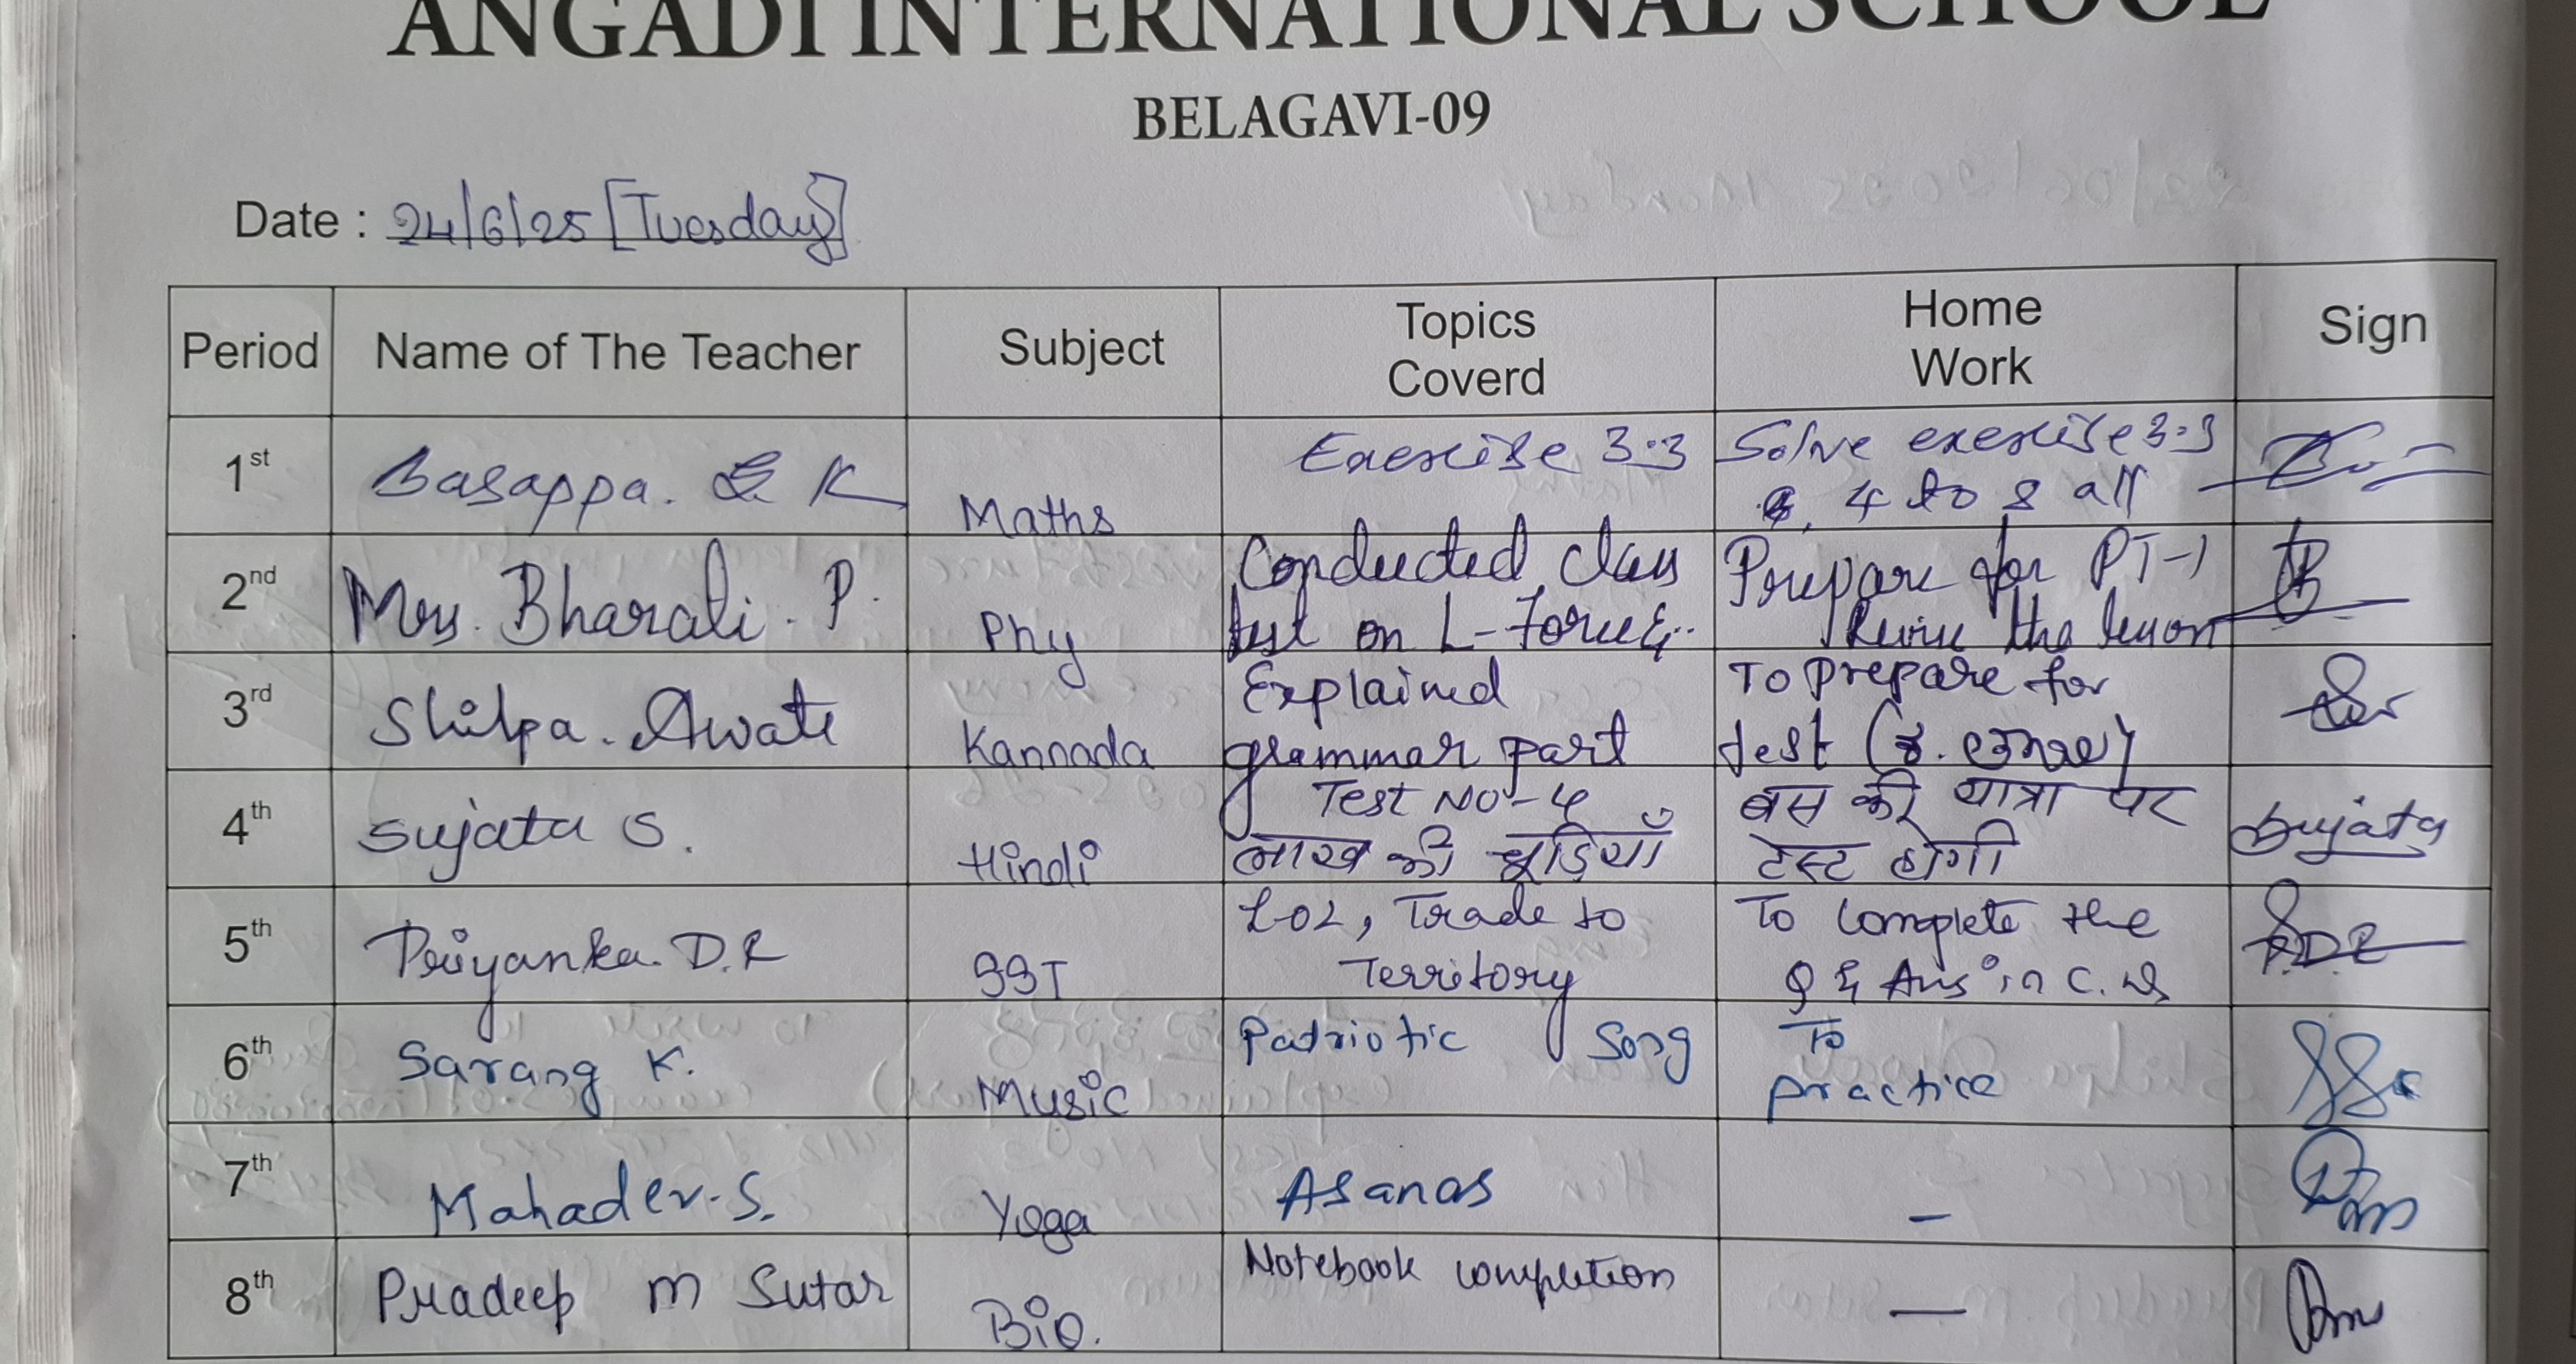 ANGADI INTERNATIONAL SCHOOL
BELAGAVI-09
Date : 24/6/25 [Tuesday]
Period Name of The Teacher Subject Topics Coverd Home Work Sign
1st Basappa. K Maths Exercise 3.3 Solve exercise 3.3
4 to 8 all
2nd Mrs. Bharati. P. Phy Conducted class Prepare for PT-1
test on L-Force &.. Revise the lesson
3rd Shilpa. Awate Kannada Explained To prepare for
grammar part test
4th Sujata S. Hindi Test No-4 बस की यात्रा पर Sujata
लाख की चूड़ियाँ टेस्ट होगी
5th Priyanka. D.R SST L02, Trade to To complete the P.D.R
Territory Q & Ans in C.W
6th Sarang K. Music Patriotic Song To
practice
7th Mahadev. S. Yoga Asanas –
8th Pradeep M Sutar Bio. Notebook completion —